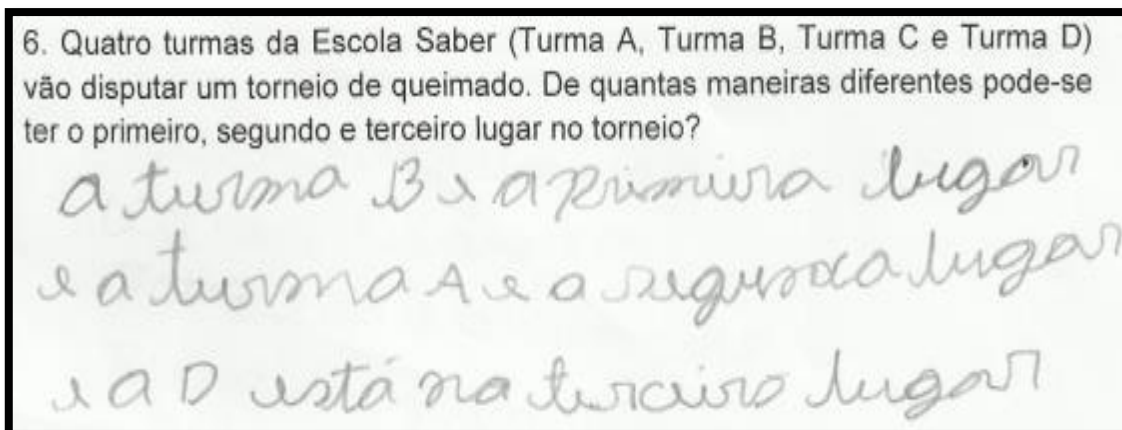 6. Quatro turmas da Escola Saber (Turma A, Turma B, Turma C e Turma D)
vão disputar um torneio de queimado. De quantas maneiras diferentes pode-se
ter o primeiro, segundo e terceiro lugar no torneio?
a turma B e a primeira lugar
e a turma A e a segunda lugar
e a D está na terceiro lugar